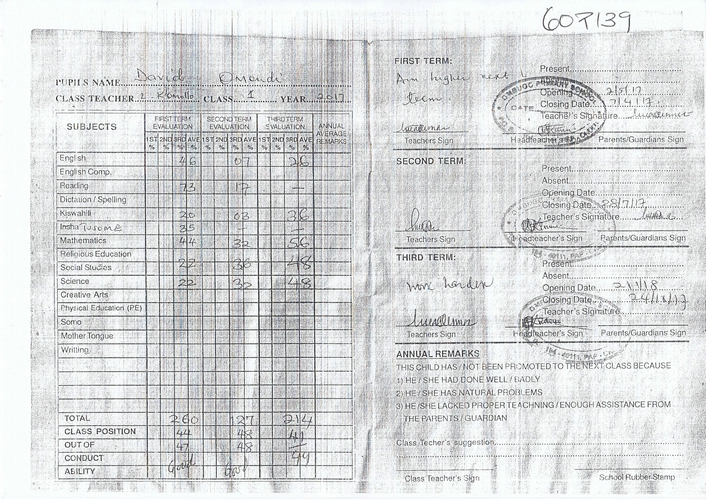 607139
PUPIL'S NAME David Omondi
CLASS TEACHER CLASS 1 YEAR 2017
SUBJECTS FIRST TERM EVALUATION SECOND TERM EVALUATION THIRD TERM EVALUATION ANNUAL AVERAGE REMARKS
1ST % 2ND % 3RD % AVE % 1ST % 2ND % 3RD % AVE % 1ST % 2ND % 3RD % AVE %
English 46 07 26
English Comp.
Reading 73 17 —
Dictation / Spelling
Kiswahili 20 03 36
Insha Tusome 35 - -
Mathematics 44 32 56
Religious Education
Social Studies 22 36 48
Science 22 32 48
Creative Arts
Physical Education (PE)
Somo
Mother Tongue
Writting
TOTAL 260 127 214
CLASS POSITION 44 48 41
OUT OF 47 48 49
CONDUCT Good Good
ABILITY
FIRST TERM:
Aim higher next
term
Present
Opening 2/5/17
Closing Date 7/4/17
Teacher's Signature
Teachers Sign Headteacher's Sign Parents/Guardians Sign
SECOND TERM:
Present
Absent
Opening Date
Closing Date 28/7/17
Teacher's Signature
Teachers Sign Headteacher's Sign Parents/Guardians Sign
THIRD TERM:
Work harder
Present
Absent
Opening Date 2/1/18
Closing Date
Teacher's Signature
Teachers Sign Headteacher's Sign Parents/Guardians Sign
ANNUAL REMARKS
THIS CHILD HAS / NOT BEEN PROMOTED TO THE NEXT CLASS BECAUSE
1) HE / SHE HAD DONE WELL / BADLY
2) HE / SHE HAS NATURAL PROBLEMS
3) HE /SHE LACKED PROPER TEACHNING / ENOUGH ASSISTANCE FROM
THE PARENTS / GUARDIAN
Class Techer's suggestion
Class Teacher's Sign School Rubber Stamp